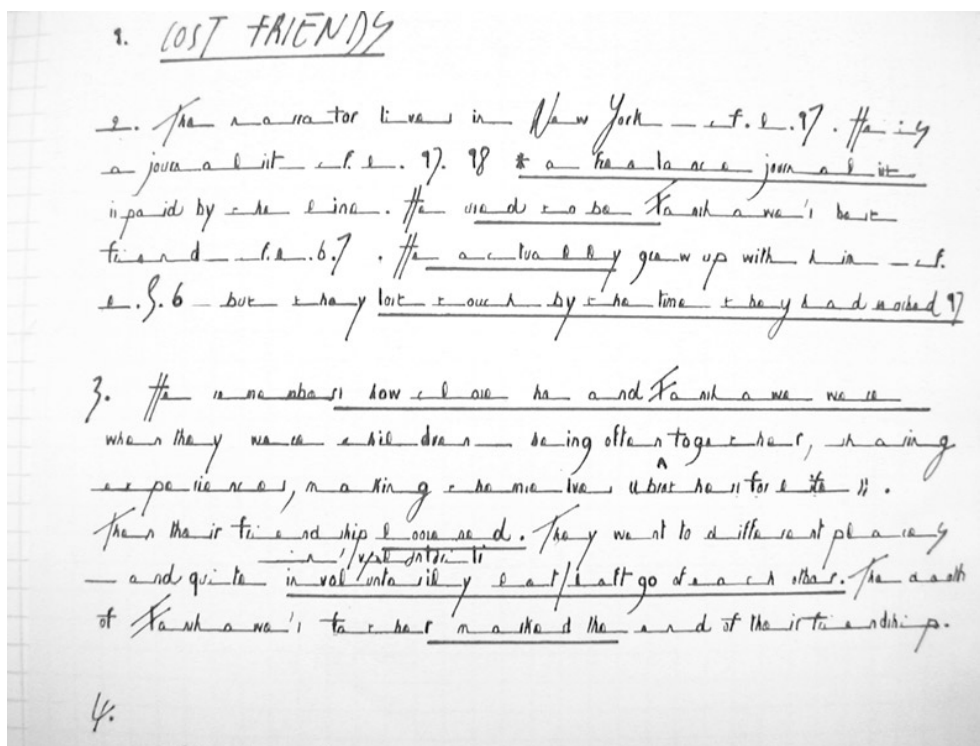 1. LOST FRIENDS
2. The narrator lives in New York – cf. l. 97. He is
a journalist – cf. l. 97. 98 * a freelance journalist
is paid by the line. He used to be Fanshawe's best
friend – cf. l. 6.7. He actually grew up with him – cf.
l. 5.6 – but they lost touch by the time they had worked 97
3. He remembers how close he and Fanshawe were
when they were children – being often together, sharing
experiences, making themselves
Then their friendship loosened. They went to different places
– and quite involuntarily let / left go of each other. The death
of Fanshawe's father marked the end of their friendship.
4.